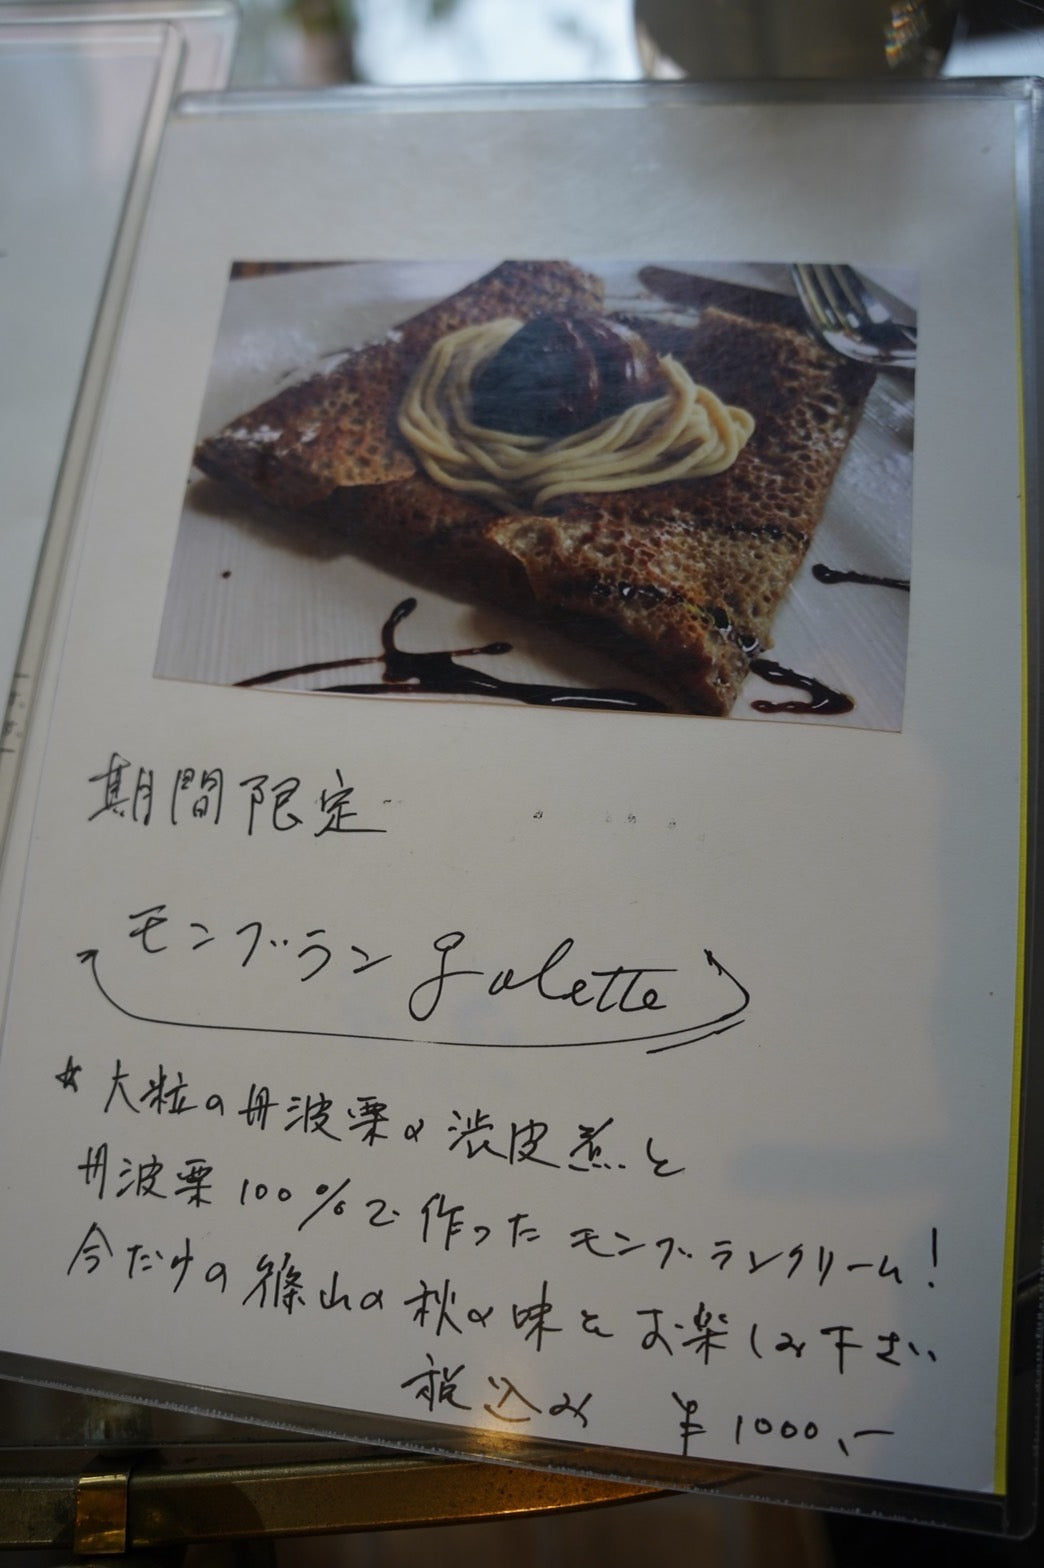 期間限定
モンブラン galette
☆大粒の丹波栗の渋皮煮と
丹波栗100%で作ったモンブランクリーム!
今だけの篠山の秋の味をお楽しみ下さい
税込み ¥1000.-